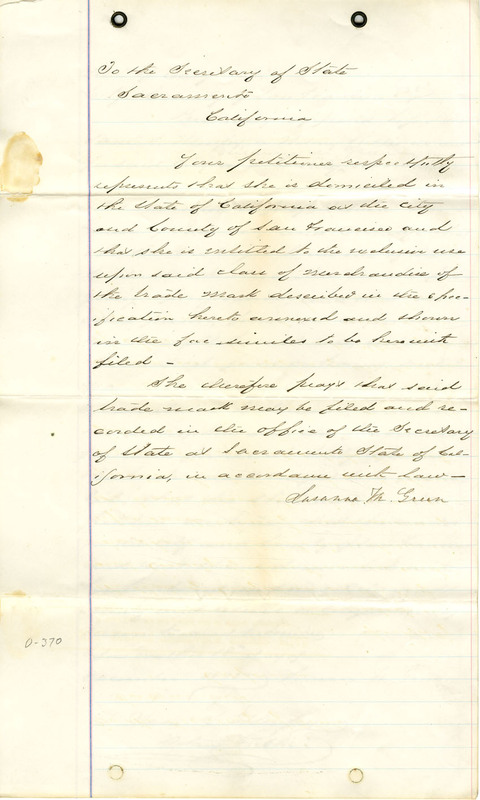 To the Secretary of State
Sacramento
California
Your petitioner respectfully
represents that she is domiciled in
the State of California at the city
and County of San Francisco and
that she is entitled to the exclusive use
upon said class of merchandise of
the trade mark described in the spec-
ification hereto annexed and shown
in the fac-similes to be herewith
filed -
She therefore prays that said
trade mark may be filed and re-
corded in the office of the Secretary
of State at Sacramento State of Cal-
ifornia, in accordance with law -
Susanna M. Green
0-370